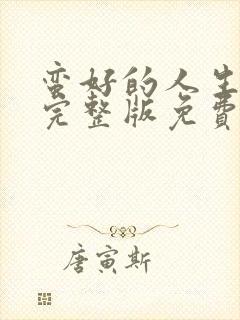 蛮好的人生
完整版免费
唐寅斯